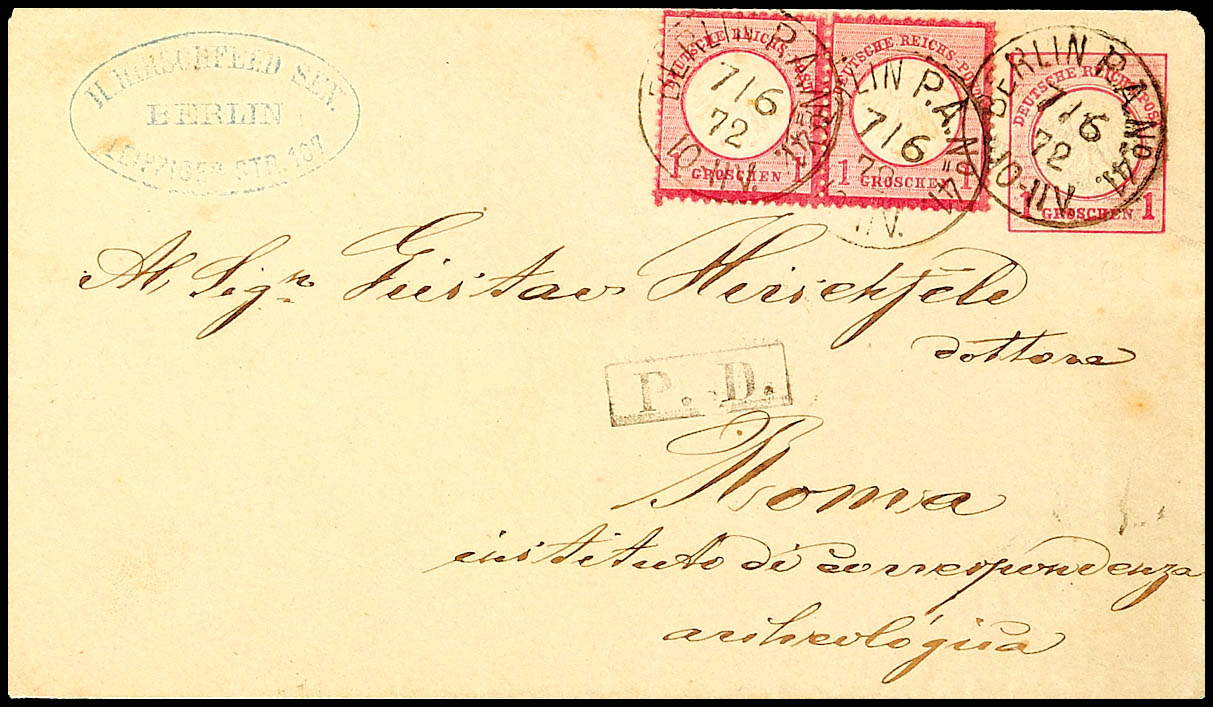 H. HIRSCHFELD SEN.
BERLIN
LEIPZIGER STR. 107
DEUTSCHE REICHS-POST
1 GROSCHEN 1
DEUTSCHE REICHS-POST
1 GROSCHEN 1
DEUTSCHE REICHS-POST
1 GROSCHEN 1
BERLIN P.A. No 41.
7/6
72
BERLIN P.A. No 41.
7/6
72
BERLIN P.A. No 41.
7/6
72
Al Sigr. Gustav Hirschfeld
dottore
P. D.
Roma
instituto di correspondenza
archeológica